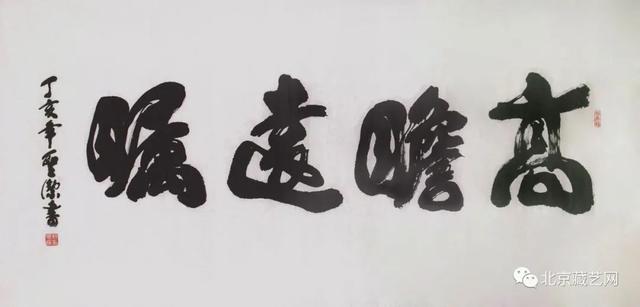 高瞻遠矚
丁亥年聖潔書
北京藏艺网